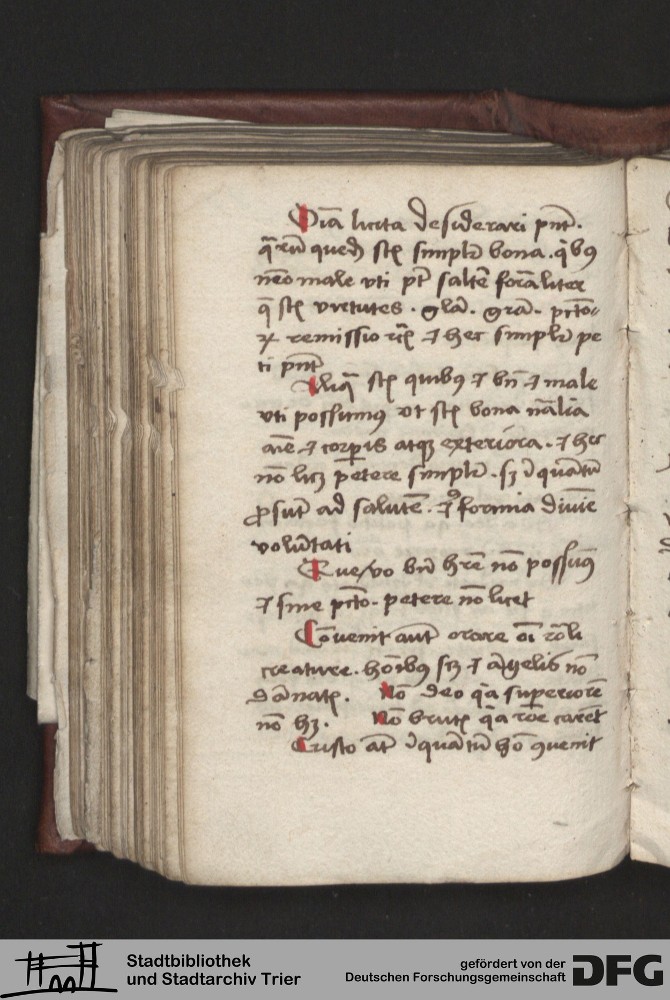 Oīa licita desiderari pnt̄.
q̄rū quedā st̄ simplr̄ bona. qͥbꝯ
nēo male vti pt̄ saltē formaliter
q̄ st̄ virtutes. glā. grā. pctō-
ꝝ remissio et hec simplr̄ pe
ti pnt̄
Aliq̄ st̄ quibꝯ ⁊ bn̄ ⁊ male
vti possumꝯ vt st̄ bona nālia
aīe ⁊ corpis atqꝫ exteriora. ⁊ hec
nō licꝫ petere simplr̄. sꝫ īquātū
ꝓsūt ad salutē. ⁊ ꝯformia divīe
volūtati
Que vo bn̄ hr̄e nō possumꝯ
⁊ sine pctō. petere nō licet
Cōuenit aūt orare oī rōli
creature. hōibꝯ scꝫ ⁊ āgelis nō
dānatis. Nō deo qͥa superiorē
nō hꝫ. Nō brutis qͥa rōe carēt
Cristo aūt īquātū hō ꝯuenit
Stadtbibliothek
und Stadtarchiv Trier
gefördert von der
Deutschen Forschungsgemeinschaft
DFG